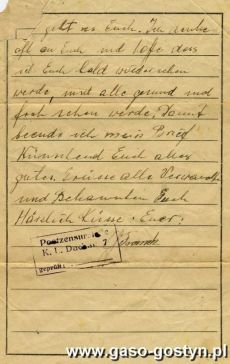 geht es Euch. Ich denke
oft an Euch und hofe dass
ich Euch bald wiedersehen
werde, und alle gesund und
froh sehen werde, Damit
beende ich mein Brief
Wünschend Euch alles
gutes. Grüsse alle Verwandt
und Bekannten Euch
Herzlich Küsse. Euer.
Postzensur
K. L. Dachau 7
geprüft
www.gaso-gostyn.pl